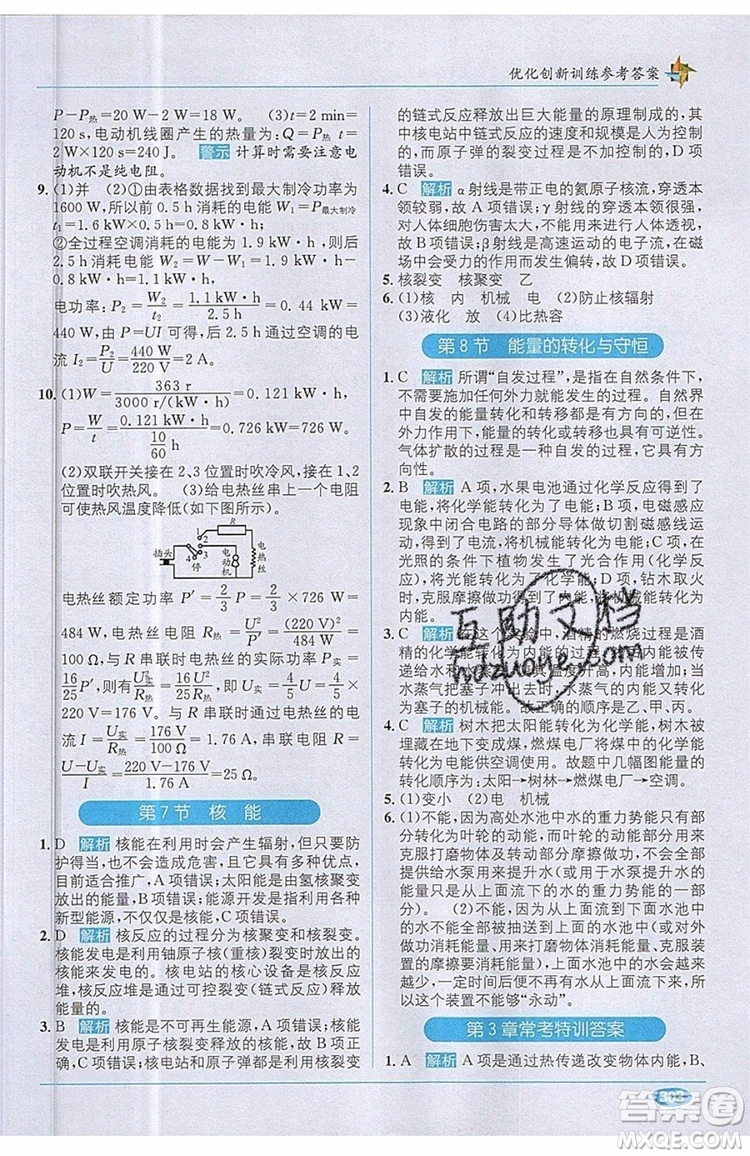 优化创新训练参考答案
P－P热=20 W－2 W=18 W。 (3)t=2 min=
120 s,电动机线圈产生的热量为:Q=P热t=
2 W×120 s=240 J。 警示 计算时需要注意电
动机不是纯电阻。
9. (1)并 (2)①由表格数据找到最大制冷功率为
1600 W,所以前0.5 h消耗的电能W1=P最大制冷
t=1.6 kW×0.5 h=0.8 kW·h
②全过程空调消耗的电能为1.9 kW·h,则后
2.5 h消耗的电能:W2=W－W1=1.9 kW·h－
0.8 kW·h=1.1 kW·h
电功率:P2=W2/t2=1.1 kW·h/2.5 h=0.44 kW=
440 W,由P=UI可得:后2.5小时通过空调的电
流I2=P2/U=440 W/220 V=2 A
10. (1)W=363 r/3000 r/(kW·h)=0.121 kW·h
P=W/t=0.121 kW·h/(10/60 h)=0.726 kW=726 W
(2)双联开关接在2、3位置时吹冷风,接在1、2
位置时吹热风。 (3)给电热丝串上一个电阻
可使热风温度降低(如下图所示)。
R
1
2
3
4
插头
停
电动机
电热丝
电热丝额定功率P′=2/3 P=2/3×726 W=
484 W,电热丝电阻R热=U²/P′=(220 V)²/484 W=
100 Ω,与R串联时电热丝的实际功率P实=
16/25 P′,则有U实²/R热=16U²/25R热,U实=4/5 U=4/5
×220 V=176 V,与R串联时通过电热丝的电
流I=U实/R热=176 V/100 Ω=1.76 A,串联电阻R=
U－U实/I=220 V－176 V/1.76 A=25 Ω。
第7节 核 能
1. D 解析 核能在利用时会产生辐射,但只要防
护得当,也不会造成危害,且它具有多种优点,
目前适合推广,A项错误;太阳能是由氢核聚变
时放出的核能,B项错误;能源开发是指开发各
种新型能源,不仅仅是核能,C项错误。
2. D 解析 核反应的过程分为核聚变和核裂变。
核能发电是利用铀原子核(重核)裂变时产生的
核能来发电的。核电站的核心设备是核反应
堆,核反应堆是通过可控裂变(链式反应)释放
能量的。
3. B 解析 核能是不可再生能源,可能对环境造成
污染,A、C项错误;核电站和原子弹都是利用核裂变
的链式反应释放出巨大能量的原理制成的,其
中核电站中链式反应的速度和规模是人为控制
的,而原子弹的裂变过程不可以人为控制,D项
错误。
4. C 解析 α射线是带正电的氦原子核流,穿透本
领较弱,故A项错误;γ射线的穿透本领很强,
对人体细胞伤害太大,不能用来进行人体透视,
故B项错误;β射线是高速运动的电子流,在磁
场中受力的作用而发生偏转,故D项错误。
5. 核裂变 核聚变 乙
6. (1)核 内 机械 电 (2)防止核辐射
(3)液化 放 (4)比热容
第8节 能量的转化与守恒
1. C 解析 所谓“自发过程”,是指在自然条件下,
不需要施加任何外力就能发生的过程。自然过
程中能量的转化和转移都是有方向的,但在外
力作用下,可以违背能量转化和转移的方向性。
气体扩散的过程是一个自发的过程。
2. B 解析 A项,水果电池通过化学反应得到了电
能,将化学能转化为了电能;B项,电磁感应
现象中闭合电路的部分导体做切割磁感线运
动,产生了电流,将机械能转化为电能;C项,
光的条件下植物发生了光合作用(化学反
应),将光能转化为化学能;D项,钻木取火
时,克服摩擦做功得到了内能,将机械能转化为
内能。
3. C 解析 在这个实验中,酒精的燃烧过程是酒
精的化学能转化为内能;内能通过热传递
传递给水和水蒸气,这是内能的转移;当
水蒸气把塞子冲出时,水蒸气的内能又转化为
塞子的机械能。故正确的顺序是乙、甲、丙。
4. C 解析 树木把太阳能转化为化学能,树木被
埋到地下变成煤,燃煤电厂利用煤的化学能转
化为电能供空调使用。故题中几幅图能量的转
化过程为:太阳→树林→燃煤电厂→空调。
5. (1)变小 (2)电 机械
6. (1)不能,因为高处水池中水的重力势能只有部
分转化为叶轮的动能,而叶轮的动能又部分用来
克服打磨物体及转动部分摩擦做功,不可能全部
用来带动水泵来提升水(或用于水泵提升水的能
量不可能使从上面流下的水全部被提升到上面
水池)。 (2)不能,因为从上面流到下面水池中
的水不能全部被抽送到上面水池中(或因打磨
物体要消耗能量,水泵提升水要消耗能量,克服装
置的摩擦要消耗能量),上面水池中的水会越来
越少,一定时间后就不再有水从上面水池流下,
所以这个装置不能够“永动”。
第3章常考特训答案
1. A 解析 A项是通过热传递改变物体内能,B、
互助文档
hdzuone.com
303
答案圈
MXQE.COM